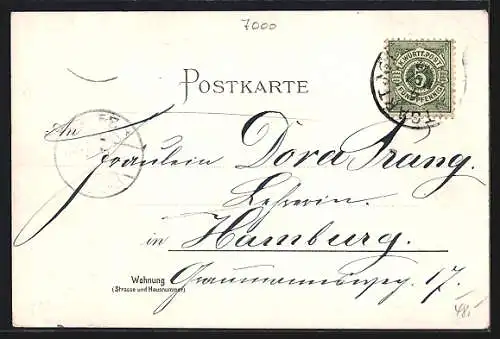 7000
K. WÜRTT. POST
5
FÜNF PFENNIG
POSTKARTE
An
Fräulein Dora Prang.
Lehrerin.
in Hamburg.
Wohnung
(Strasse und Hausnummer)
Graumannsweg. 17.
48.-